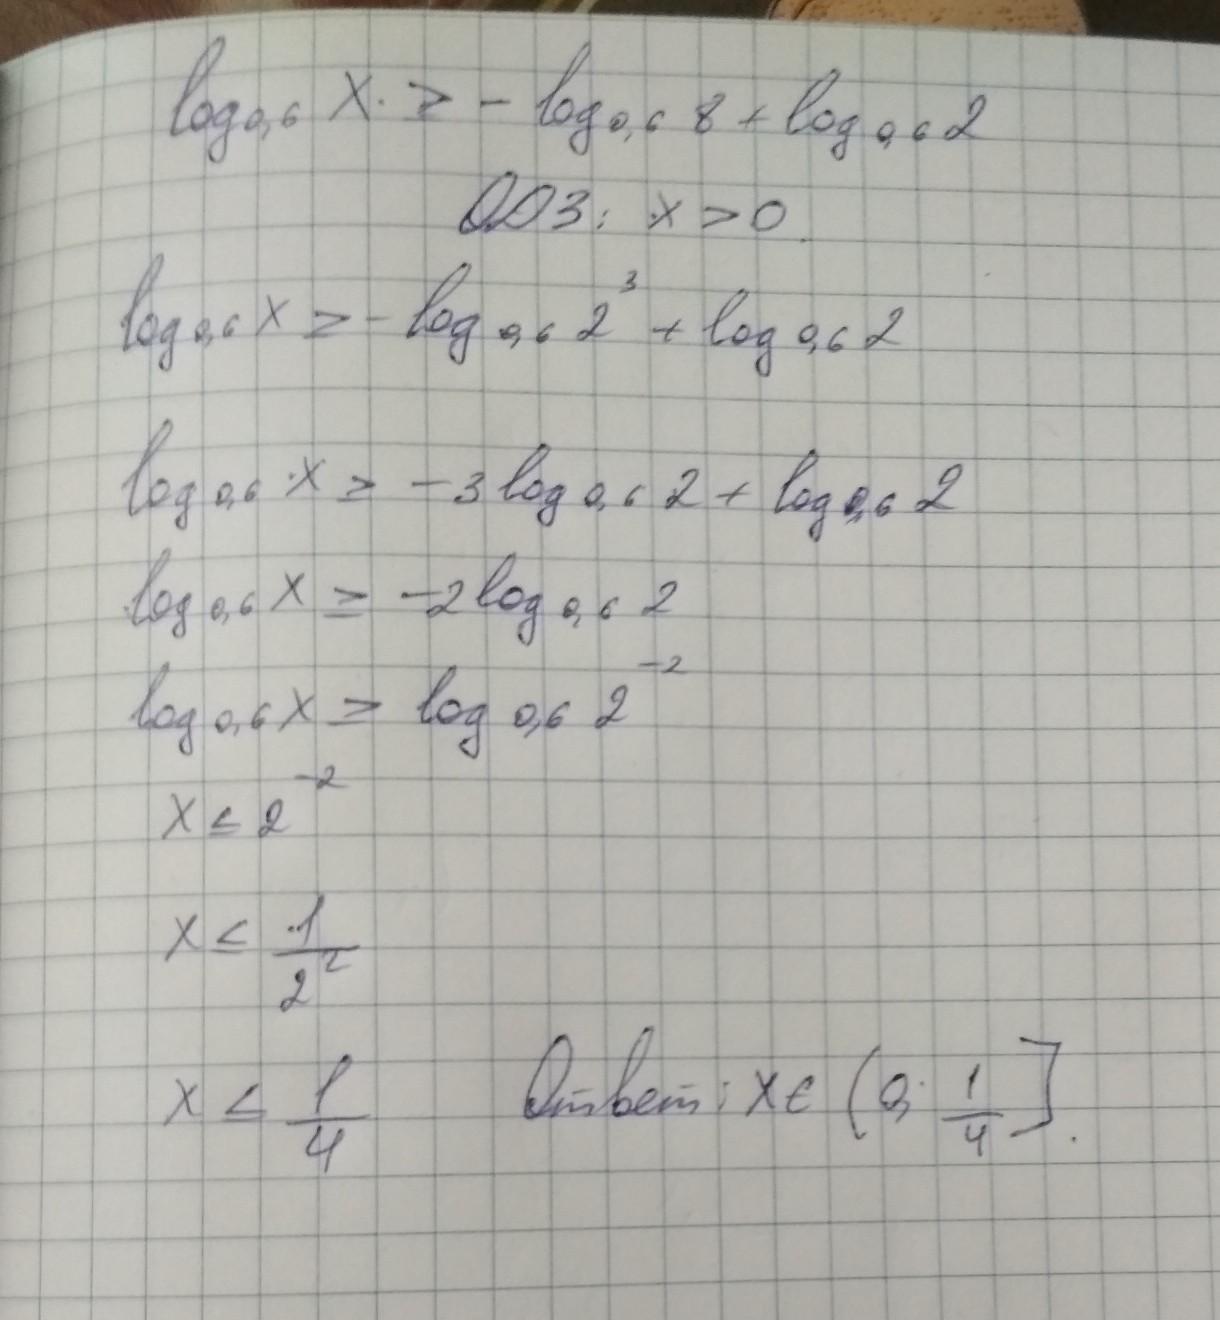 log₀,₆ x ≥ - log₀,₆ 8 + log₀,₆ 2
ОДЗ: x > 0.
log₀,₆ x ≥ - log₀,₆ 2³ + log₀,₆ 2
log₀,₆ x ≥ -3 log₀,₆ 2 + log₀,₆ 2
log₀,₆ x ≥ -2 log₀,₆ 2
log₀,₆ x ≥ log₀,₆ 2⁻²
x ≤ 2⁻²
x ≤ 1/2²
x ≤ 1/4 Ответ: x ∈ (0; 1/4].